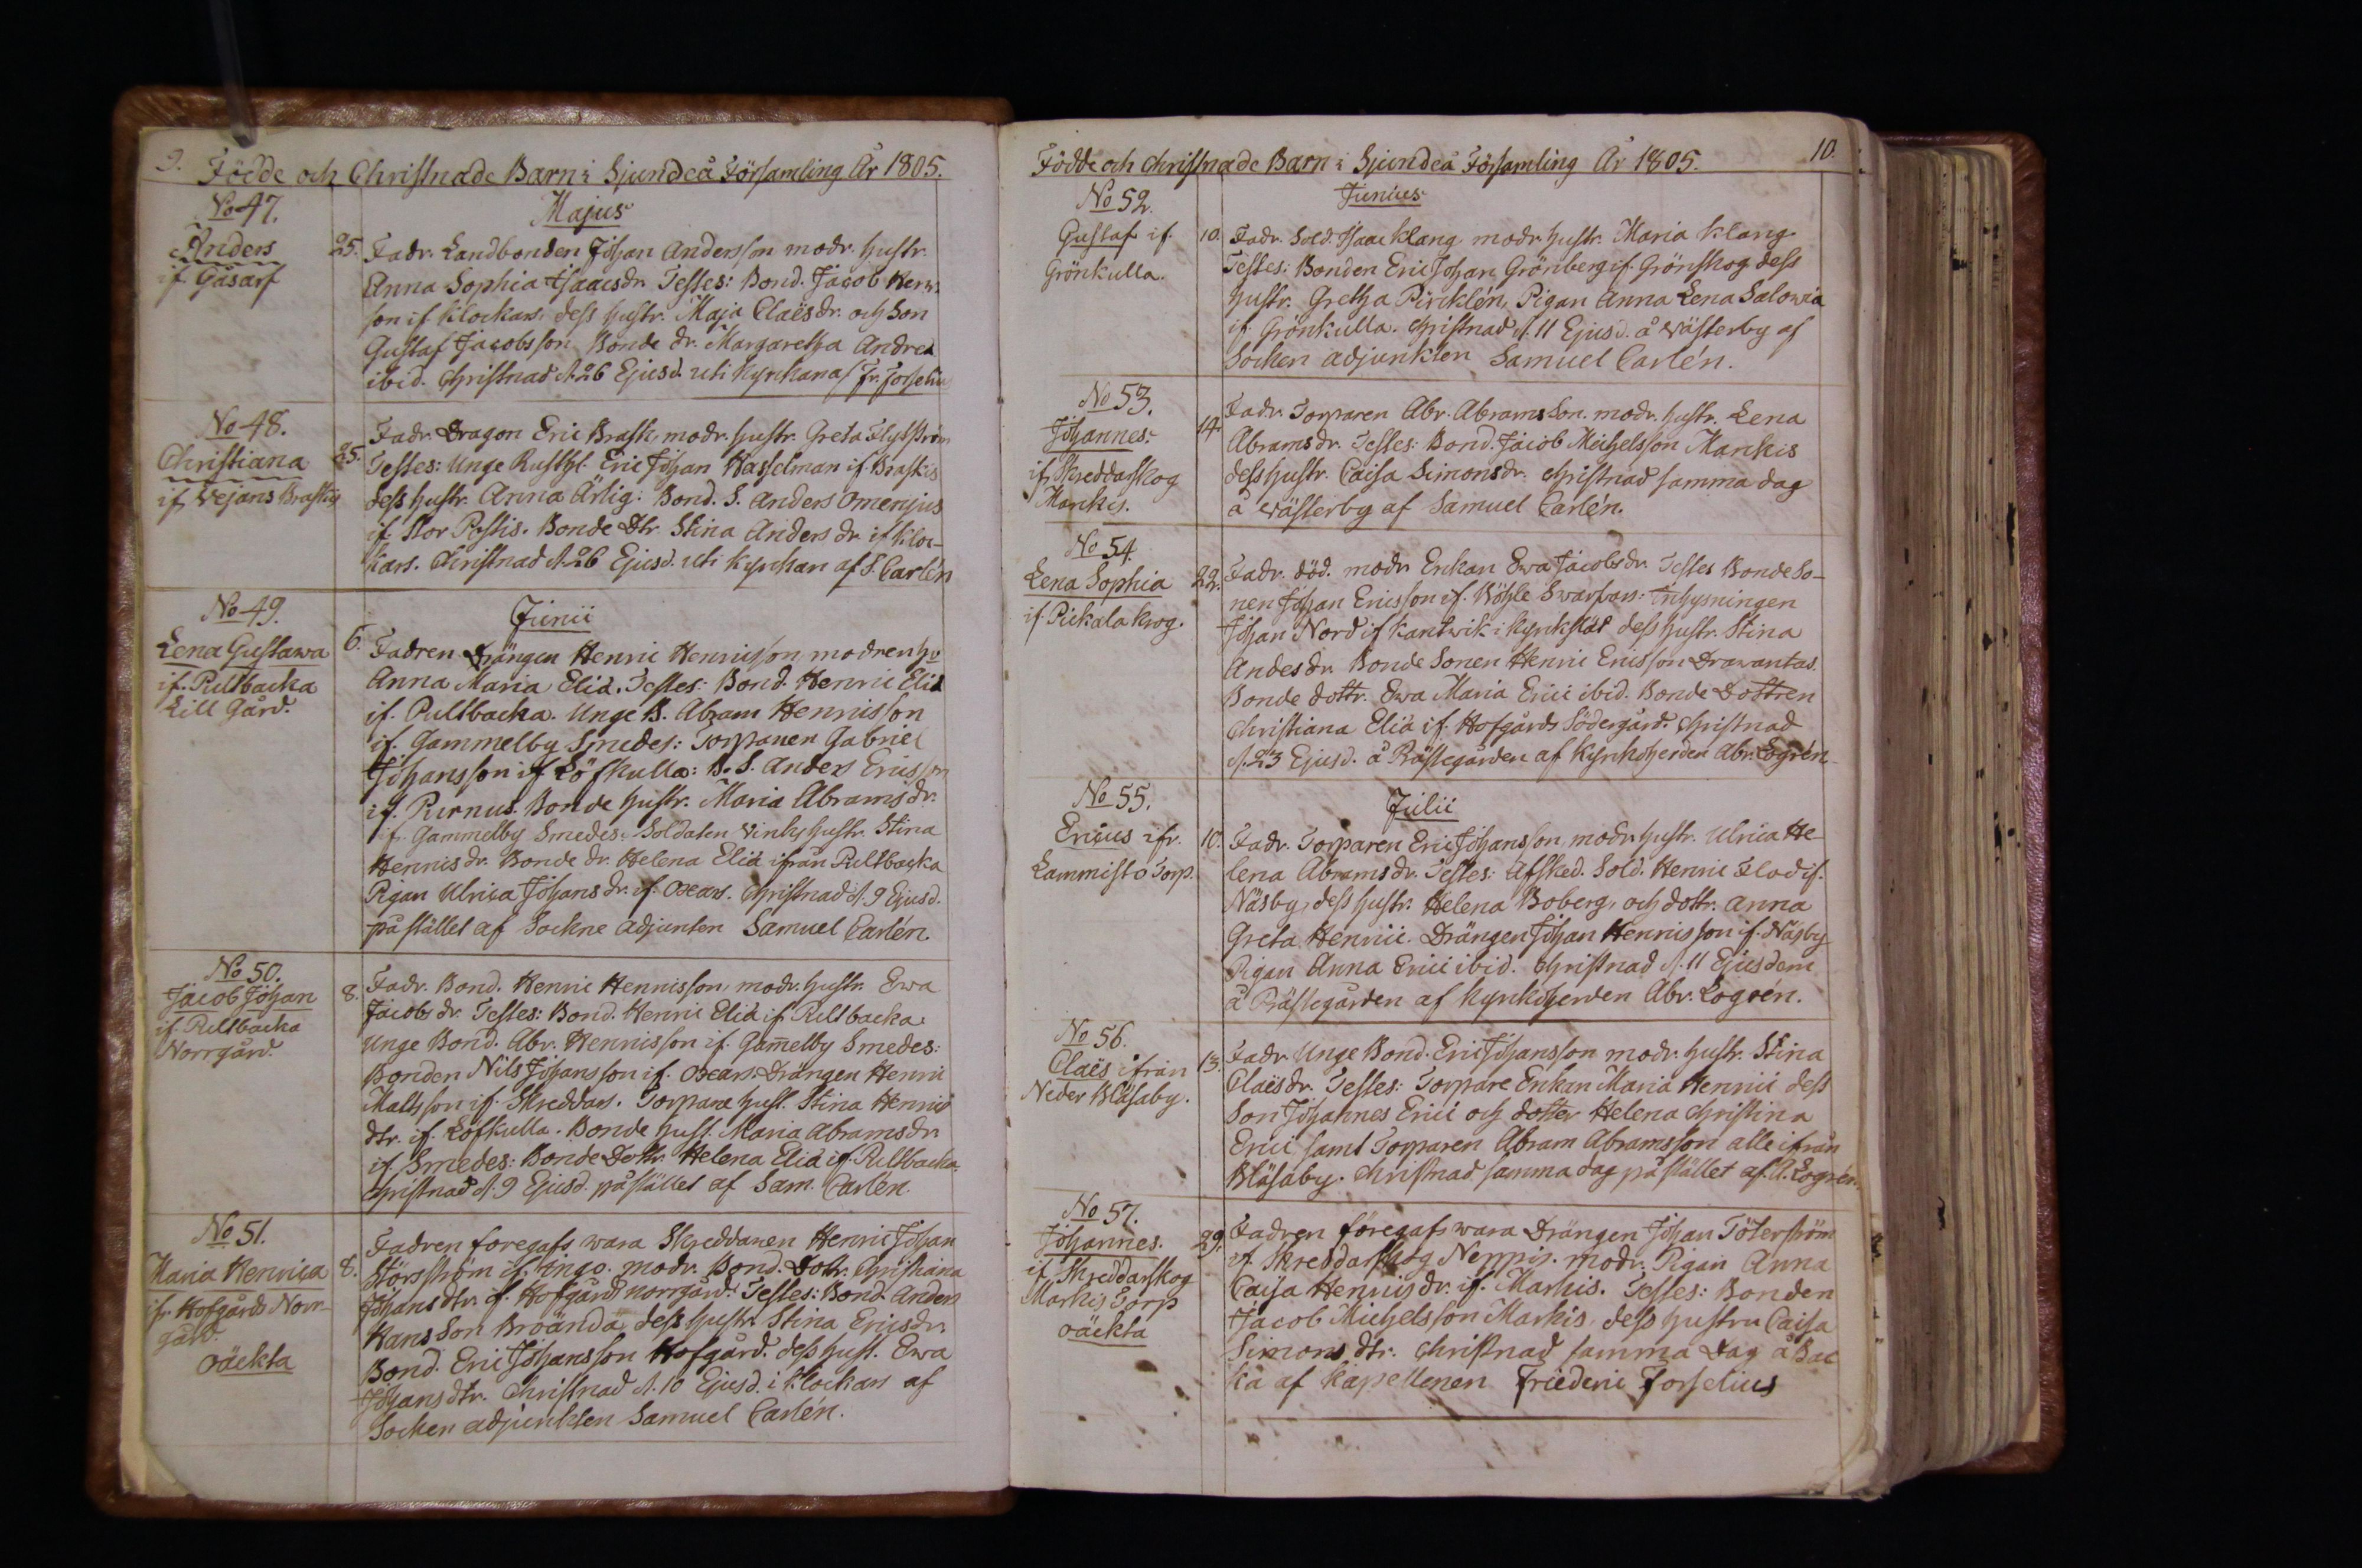 9. Födde och Christnade Barn i Sjundeå Församling År 1805.
No 47.
Majus
Anders
if Gåsarf
25. Fadr. Landbonden Johan Andersson modr. hustr.
Anna Sophia Isaacsdr. Testes: Bond. Jacob Henr.
son if Klockars, dess hustr. Maja Claësdr. och Son
Gustaf Jacobsson Bonde dr. Margaretha Andreæ
ibid. Christnad d. 26 Ejusd. uti Kyrkan af Fr. Forselius
No 48.
Christiana
if Vejans Brastis
25. Fadr. Dragon Eric Brask, modr. hustr. Greta Flytström
Testes: Unge Rusth. Eric Johan Hasselman if. Braskis
dess hustr. Anna Ärlig. Bond. S. Anders Omenjus
if Stor Pästis. Bonde Dtr. Stina Anders dr. if Kloc-
kars. Christnad d. 26 Ejusd. uti Kyrkan af S. Carlén
No 49.
Junii
Lena Gustawa
if. Pultbacka
Lill Gård.
6. Fadren Drängen Henric Henricsson, modren hu
Anna Maria Eliä. Testes: Bond. Henric Eliä
if. Pultbacka. Unge B. Abram Henricsson
if. Gammelby Smedes: Torparen Gabriel
Johansson if Löfkulla: B. S. Anders Ericsson
if. Purnus. Bonde hustr. Maria Abramsdr.
if. Gammelby Smedes: Soldaten Vinbs hustr. Stina
Henricsdr. Bonde dr. Helena Eliä ifrån Pultbacka
Pigan Ulrica Johansdr. if. Oxars. Christnad d. 9 Ejusd.
på stället af Sockne adjunten Samuel Carlén.
No 50.
Jacob Johan
if. Pultbacka
Norrgård.
8. Fadr. Bond. Henric Henricsson, modr. hustr. Ewa
Jacobs dr. Testes: Bond. Henric Eliä if Pultbacka:
Unge Bond. Abr. Henricsson if. Gam̄elby Smedes:
Bonden Nils Johansson if. Oxars. Drängen Henric
Mattsson if. Skreddars. Torpare hust. Stina Henric
dtr. if. Löfkulla. Bonde hust. Maria Abramsdr.
if. Smedes: Bonde Dottr. Helena Eliä if. Pultbacka.
Christnad d. 9 Ejusd. på stället af Sam. Carlén.
No 51.
Maria Henrica
ifr. Hofgårds Norr-
gård.
oäckta
8. Fadren föregafs wara Skreddaren Henric Johan
Störström if. Ingo. modr. Bond. Dottr. Christiana
Johansdtr. if. Hofgård norrgård. Testes: Bond. Anders
Hans Son Broända, dess hustr. Stina Ericsdr.
Bond. Eric Johansson Hofgård. dess hust. Ewa
Johansdtr. Christnad d. 10 Ejusd. i Klockars af
Socken adjunkten Samuel Carlén.
Födde och Christnade Barn i Sjundeå Församling År 1805. 10.
No 52.
Junius
Gustaf if.
Grönkulla.
10. Fadr. Sold. Isaac Klang modr. hustr. Maria Klang
Testes: Bonden Eric Johan Grönberg if. Grönskog dess
hustr. Gretha Pircklén, Pigan Anna Lena Salonia
if. Grönkulla. Christnad d. 11 Ejusd. å Wästerby af
Socken adjunkten Samuel Carlén.
No 53.
Johannes
if. Skreddarskog
Markis.
14. Fadr. Torparen Abr. Abramsson. modr. hustr. Lena
Abramsdr. Testes: Bond. Jacob Michelsson Markis
dess hustr. Caisa Simonsdr. Christnad samma dag
å Wästerby af Samuel Carlén.
No 54.
Lena Sophia
if. Pickala krog.
22. Fadr. död. modr. Enkan Ewa Jacobsdr. Testes Bonde So-
nen Johan Ericsson if. Böhle Swarfvars: Inhysningen
Johan Nord if Kantwik i Kyrkslät dess hustr. Stina
Andesdr. Bonde Sonen Henric Ericsson Drawantas.
Bonde dottr. Ewa Maria Erici ibid. Bonde Dottren
Christiana Eliä if. Hofgårds Södergård. Christnad
d. 23 Ejusd. å Prästegården af Kyrkoherden Abr. Logrén.
No 55.
Julii
Ericus ifr.
Lammisto Torp.
10. Fadr. Torparen Eric Johansson, modr. hustr. Ulrica He
lena Abramsdr. Testes: Afsked. Sold. Henric Flod if.
Näsby, dess hustr. Helena Boberg, och dottr. Anna
Greta Henrici. Drängen Johan Henricsson if. Näsby
Pigan Anna Erici ibid. Christnad d. 11 Ejusdem
å Prästegården af Kyrkoherden Abr. Logrén.
No 56.
Claës ifrån
Neder Blåsaby.
13. Fadr. Unge Bond. Eric Johansson modr. hustr. Stina
Claësdr. Testes: Torpare Enkan Maria Henrici dess
Son Johannes Erici och dotter Helena Christina
Erici samt Torparen Abram Abramsson alle ifrån
Blåsaby. Christnad samma dag på stället af. A. Logrén.
No 57.
Johannes.
if. Skreddarskog
Markis Torp
oäckta
29. Fadren föregafs wara Drängen Johan Töterström
if. Skreddarskog Neppis. modr. Pigan Anna
Caisa Henricsdr. if. Markis. Testes: Bonden
Jacob Michelsson Markis, dess hustru Caisa
Simons dtr. Christnad samma Dag å Bac
ka af Kapellanen Friederic Forselius